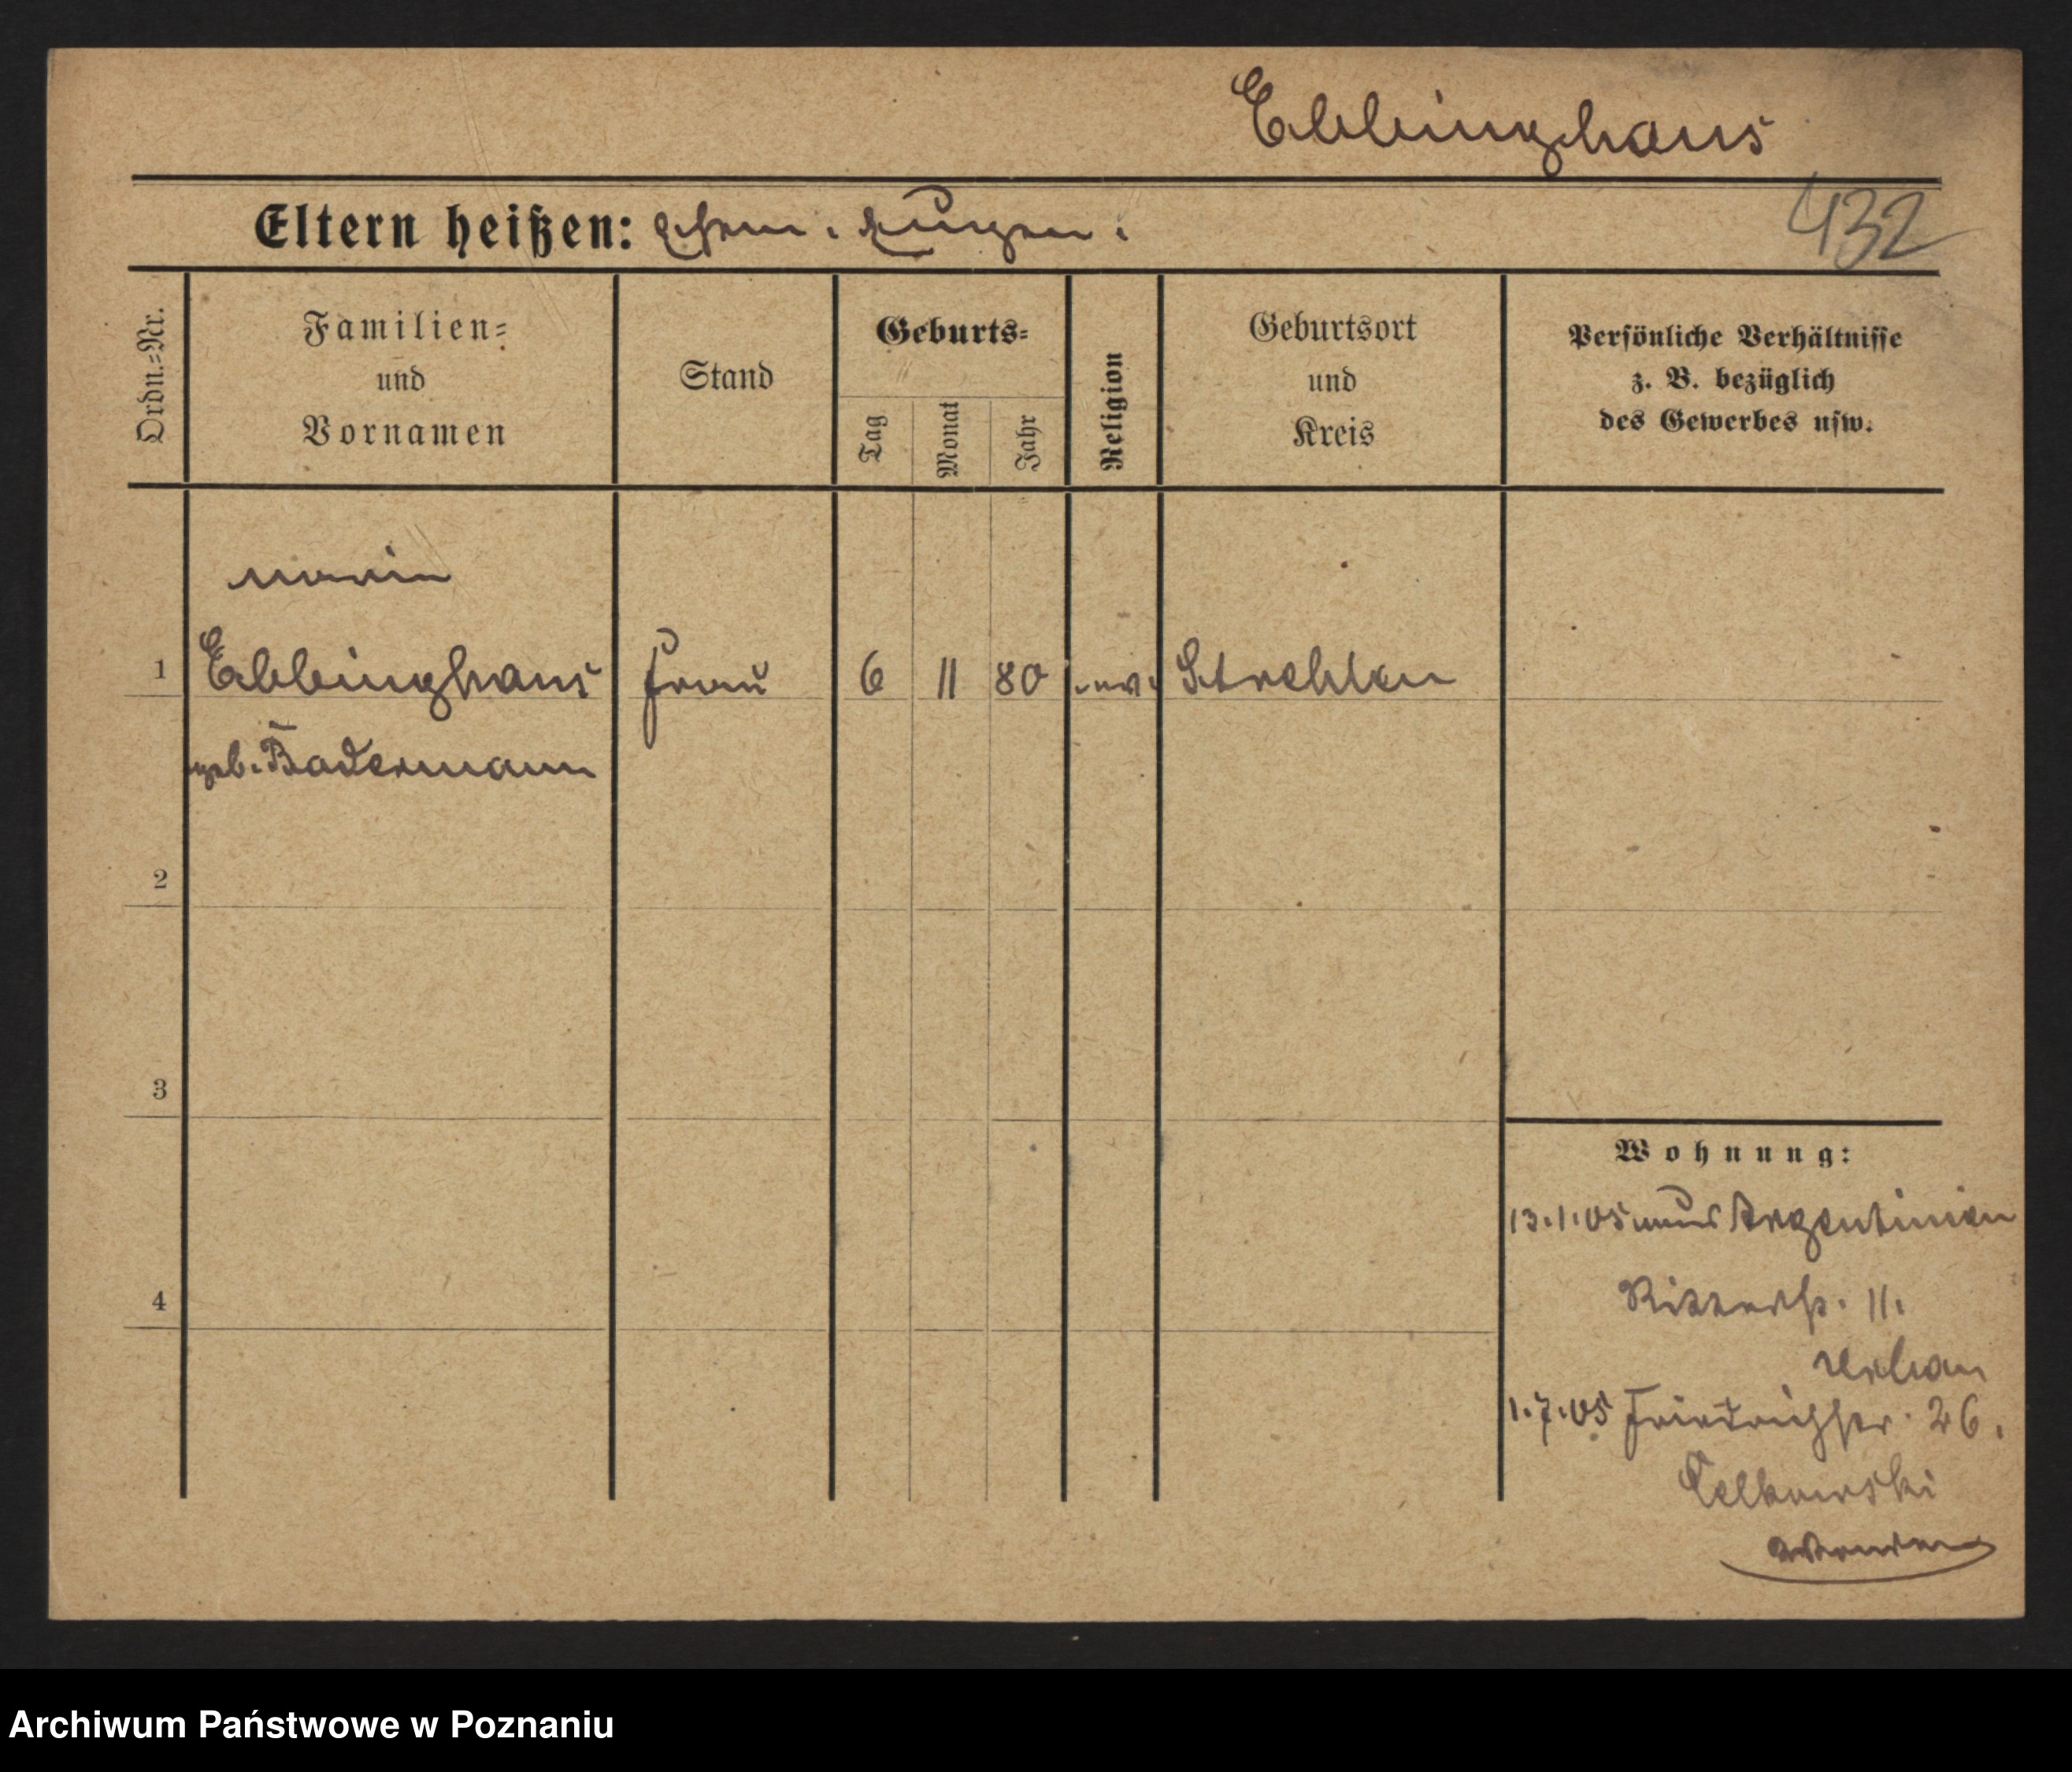 Ebbinghaus
432
Eltern heißen: Ehem. Eugen.
Ordn.=Nr.
Familien=
und
Vornamen
Stand
Geburts=
Tag
Monat
Jahr
Religion
Geburtsort
und
Kreis
Persönliche Verhältnisse
z. B. bezüglich
des Gewerbes usw.
1
Ebbinghaus Frau 6 11 80 Strehlen
geb. Badermann
2
3
4
Wohnung:
13.1.05 aus Argentinien
Ritterst. 11.
Urban
1.7.05 Friedrichstr. 26.
Archiwum Państwowe w Poznaniu